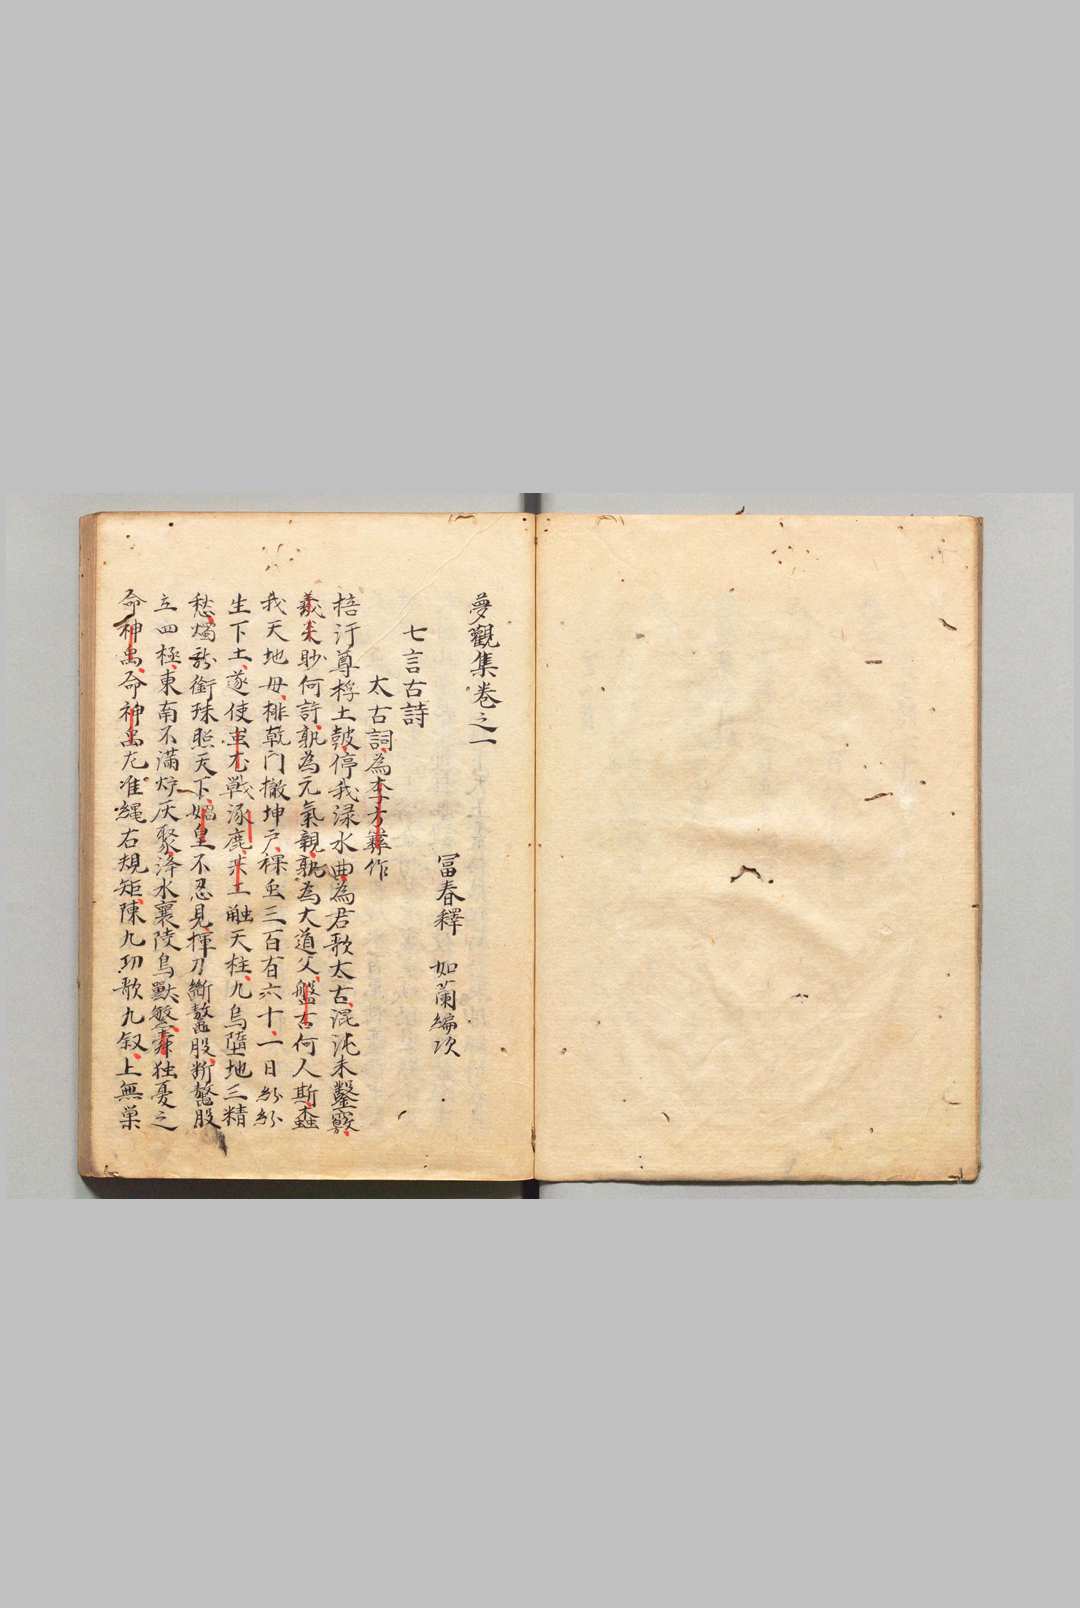 夢觀集卷之一
冨春釋 如蘭編次
七言古詩
太古詞為李方彝作
桮汙尊桴土鼓停我渌水曲為君歌太古混沌未鑿竅
羲未眇何許孰為元氣親孰為大道父盤古何人斯蠢
我天地母排乹門撤坤戸裸虫三百有六十一日紛紛
生下土遂使蚩尤戰涿鹿共工触天柱九烏墮地三精
愁燭龍銜珠照天下媧皇不忍見揮刀斷鼇股断鼇股
立四極東南不滿炉灰聚洚水襄陵鳥獸繁舜独憂之
命神禹命神禹左准繩右規矩陳九功歌九叙上無巢